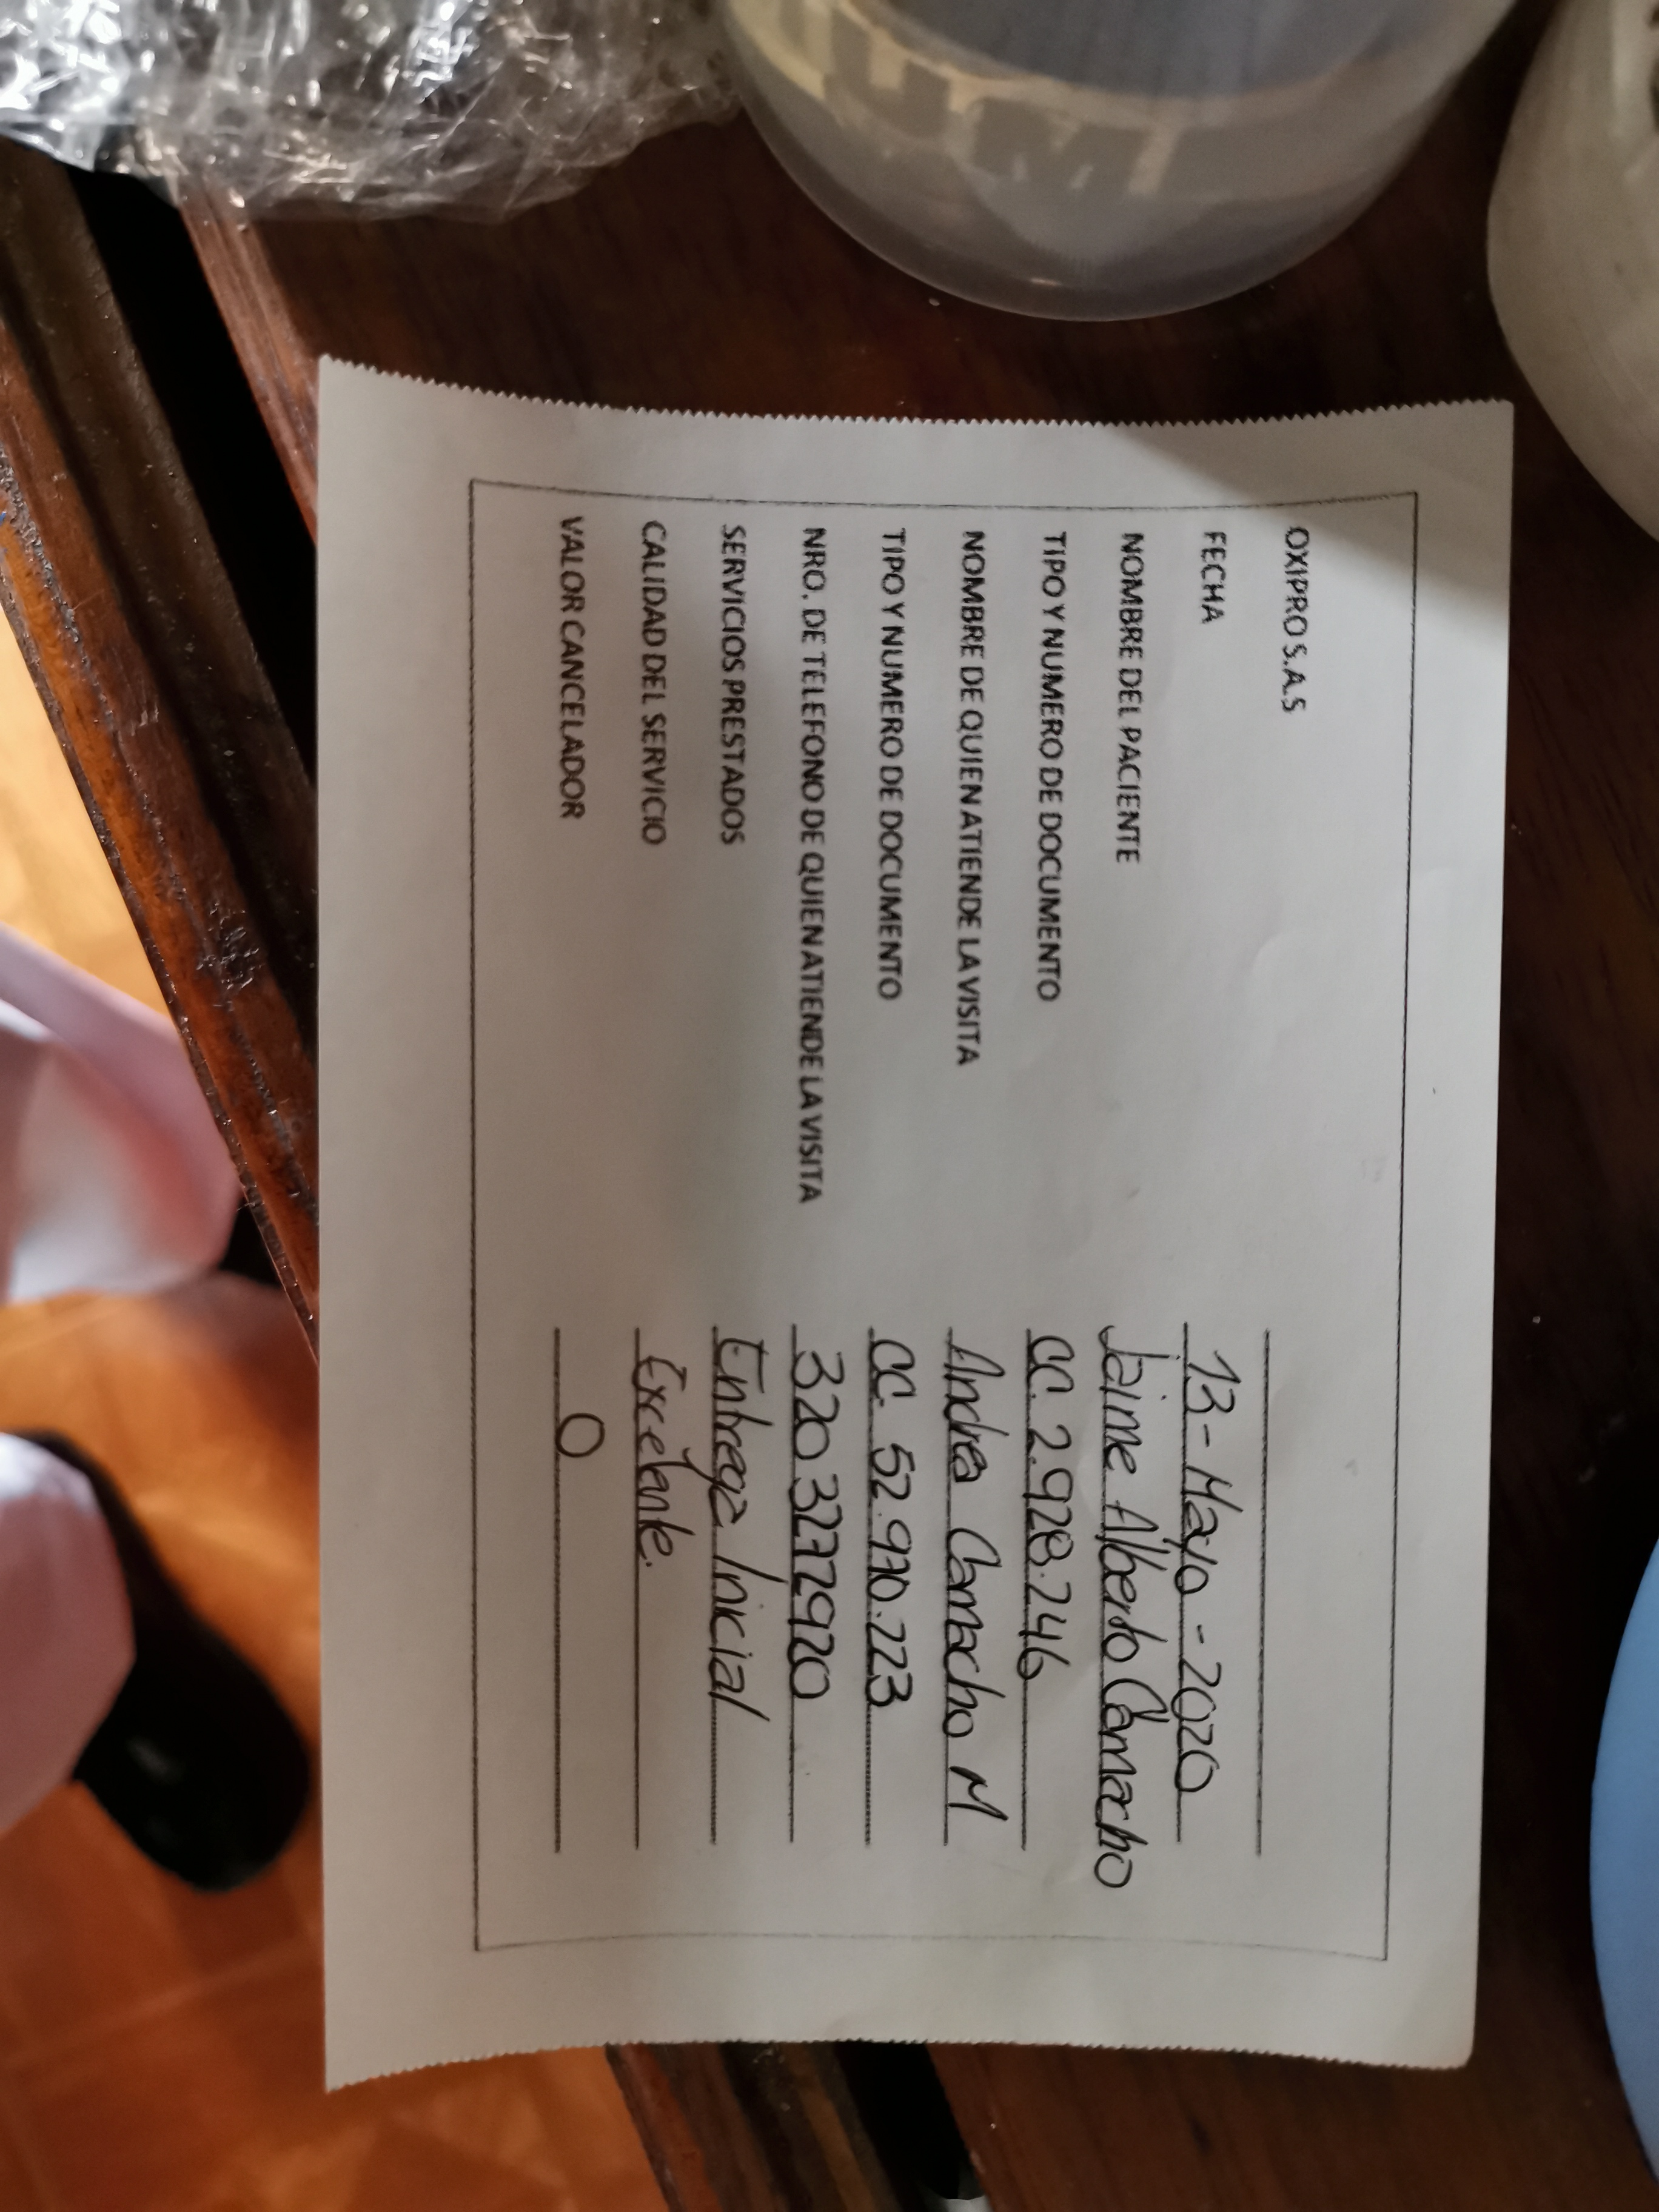 OXIPRO S.A.S
FECHA 13-Mayo-2020
NOMBRE DEL PACIENTE Jaime Alberto Camacho
TIPO Y NUMERO DE DOCUMENTO CC. 2.928.246
NOMBRE DE QUIEN ATIENDE LA VISITA Andrea Camacho M
TIPO Y NUMERO DE DOCUMENTO CC. 52.970.223
NRO. DE TELEFONO DE QUIEN ATIENDE LA VISITA 320 3272920
SERVICIOS PRESTADOS Entrega Inicial
CALIDAD DEL SERVICIO Excelente.
VALOR CANCELADOR 0